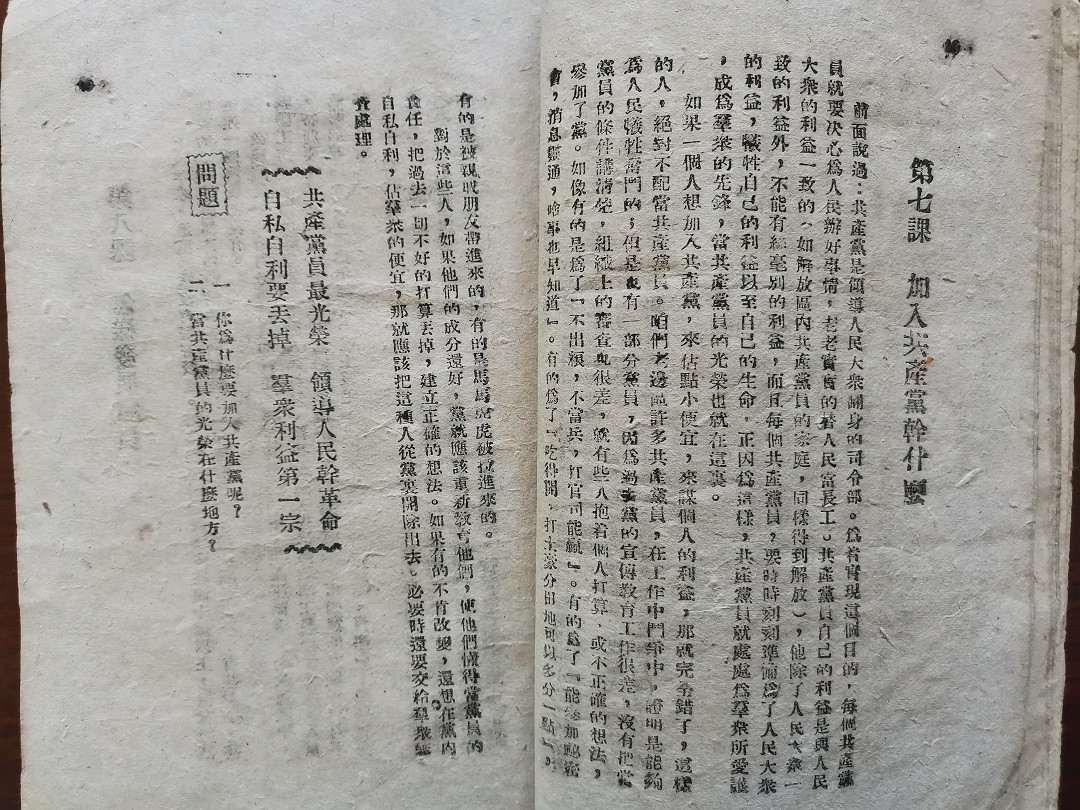 第七課　加入共產黨幹什麼
前面說過：共產黨是領導人民大衆翻身的司令部。爲着實現這個目的，每個共產黨
員就要決心爲人民辦好事情，老老實實的替人民當長工。共產黨員自己的利益是與人民
大衆的利益一致的（如解放區內共產黨員的家庭，同樣得到解放），他除了人民大衆一
致的利益外，不能有絲毫別的利益，而且每個共產黨員，要時時刻刻準備爲了人民大衆
的利益，犧牲自己的利益以至自己的生命，正因爲這樣，共產黨員就處處爲羣衆所愛護
，成爲羣衆的先鋒，當共產黨員的光榮也就在這裏。
如果一個人想加入共產黨，來佔點小便宜，來謀個人的利益，那就完全錯了，這樣
的人，絕對不配當共產黨員。咱們老邊區許多共產黨員，在工作中鬥爭中，證明是能夠
爲人民犧牲奮鬥的；但是也有一部分黨員，因爲過去黨的宣傳教育工作很差，沒有把當
黨員的條件講清楚，組織上的審查也很差，就有些人抱着個人打算，或不正確的想法，
參加了黨。如像有的是爲了『不出糧，不當兵，打官司能贏』。有的爲了『能參加秘密
會，消息靈通，啥事也早知道』。有的爲了『吃得開，打土豪分田地可以多分一點』，
有的是被親戚朋友帶進來的，有的是馬馬虎虎被拉進來的。
對於這些人，如果他們的成分還好，黨就應該重新教育他們，使他們懂得當黨員的
責任，把過去一切不好的打算丟掉，建立正確的想法。如果有的不肯改變，還想在黨內
自私自利，佔羣衆的便宜，那就應該把這種人從黨裏開除出去。必要時還要交給羣衆審
查處理。
共產黨員最光榮　領導人民幹革命
自私自利要丟掉　羣衆利益第一宗
問題
一　你爲什麼要加入共產黨呢？
二　當共產黨員的光榮在什麼地方？